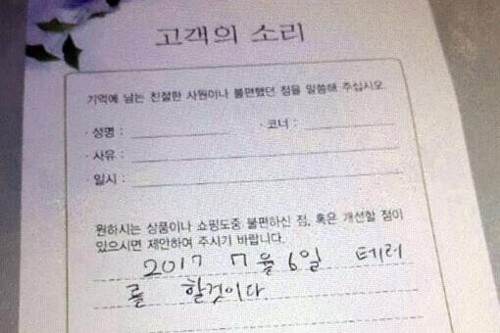 고객의 소리
기억에 남는 친절한 사원이나 불편했던 점을 말씀해 주십시오
· 성명 : · 코너 :
· 사유 :
일시 :
원하시는 상품이나 쇼핑도중 불편하신 점, 혹은 개선할 점이
있으시면 제안하여 주시기 바랍니다.
2017 7월 6일 테러
를 할것이다